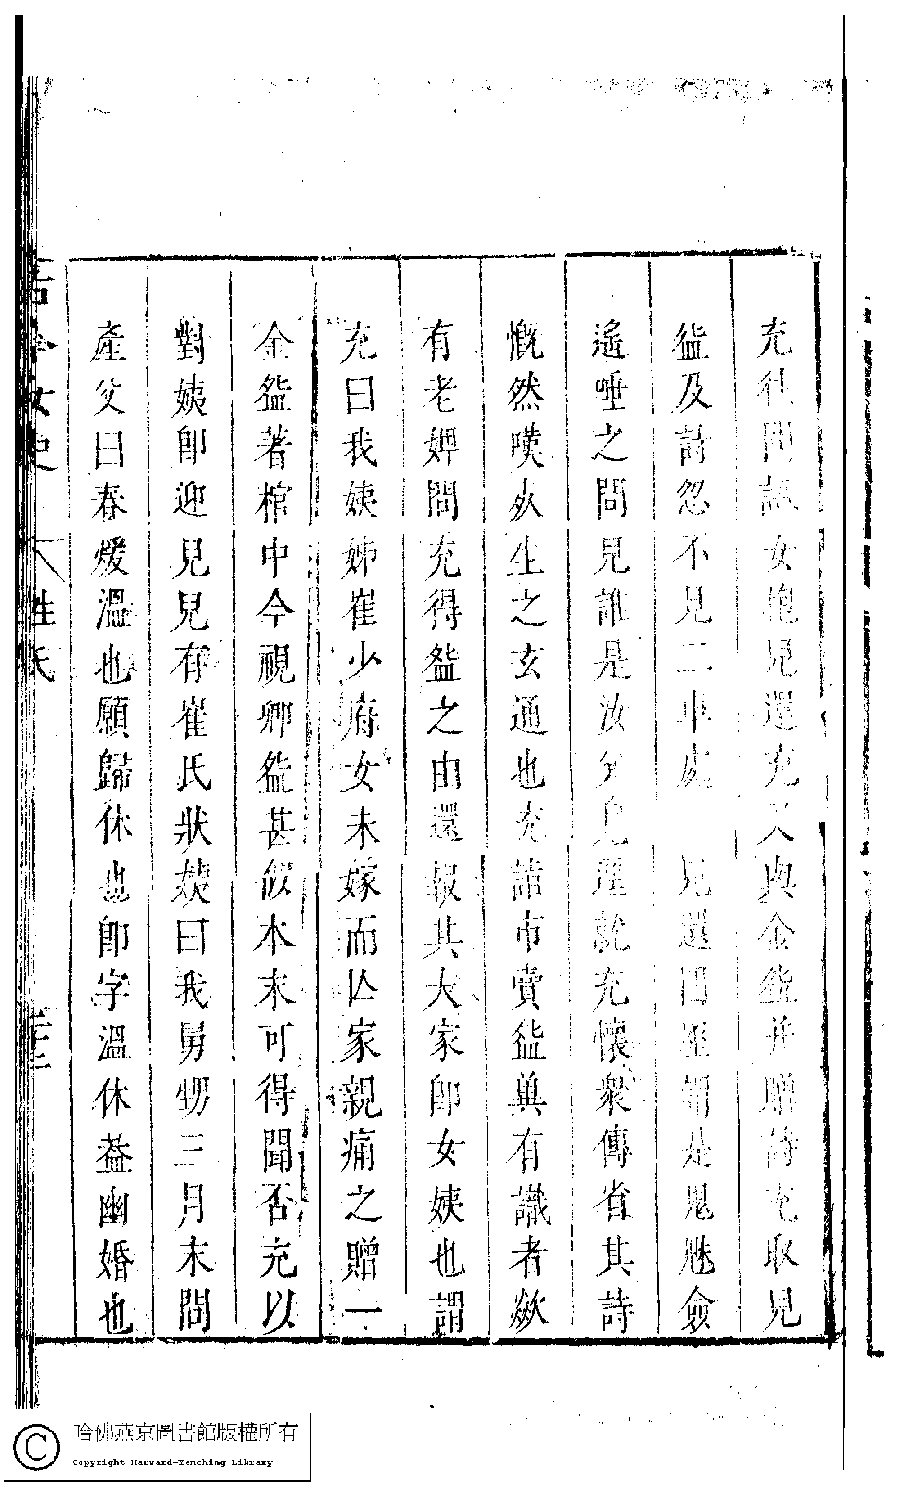 充往問訊女抱兒還充又與金鎞并贈詩充取兒
鎞及詩忽不見二車處 兒還四坐謂是鬼魅僉
遙唾之問兒誰是汝父兒逕就充懷衆傳省其詩
慨然嘆死生之玄通也充詣市賣鎞兾有識者欻
有老婢問充得鎞之由還報其大家即女姨也謂
充曰我姨姊崔少府女未嫁而亾家親痛之贈一
金鎞著棺中今視卿鎞甚似本末可得聞否充以
對姨即迎兒兒有崔氏狀姨曰我舅甥三月末間
產父曰春煖溫也願歸休也即字溫休葢幽婚也
女史 姓氏
哈佛燕京圖書館版權所有
Copyright Harvard-Yenching Library